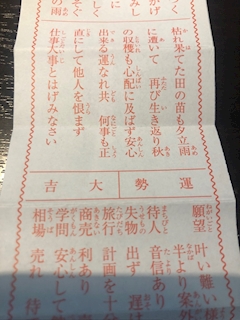 の雨
枯れ果てた田の苗も夕立雨
に遭いて 再び生き返り秋
の収穫も心配に及ばず安心
出来る運なれ共 何事も正
直にして他人を恨まず
仕事大事とはげみなさい
運勢 大吉
願望 叶い難い様
半より案外
待人 音信あり
失物 出ず 遅
旅行 計画を十分
商売 利あり
学問 安心して
相場 売れ 待